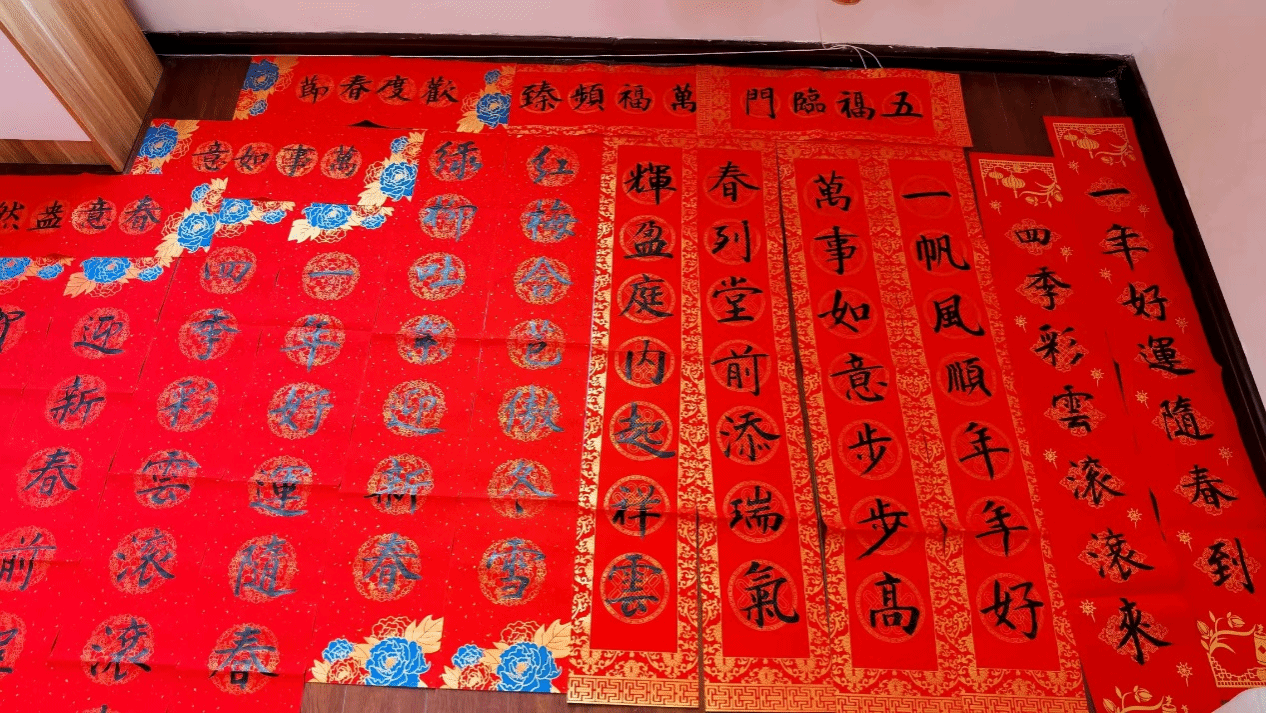 五福臨門
萬福頻臻
歡度春節
萬事如意
春意盎然
一年好運隨春到
四季彩雲滾滾來
一帆風順年年好
萬事如意步步高
春列堂前添瑞氣
輝盈庭內起祥雲
红梅含苞傲冬雪
绿柳吐絮迎新春
一年好運隨春
四季彩雲滾滾
迎新春前